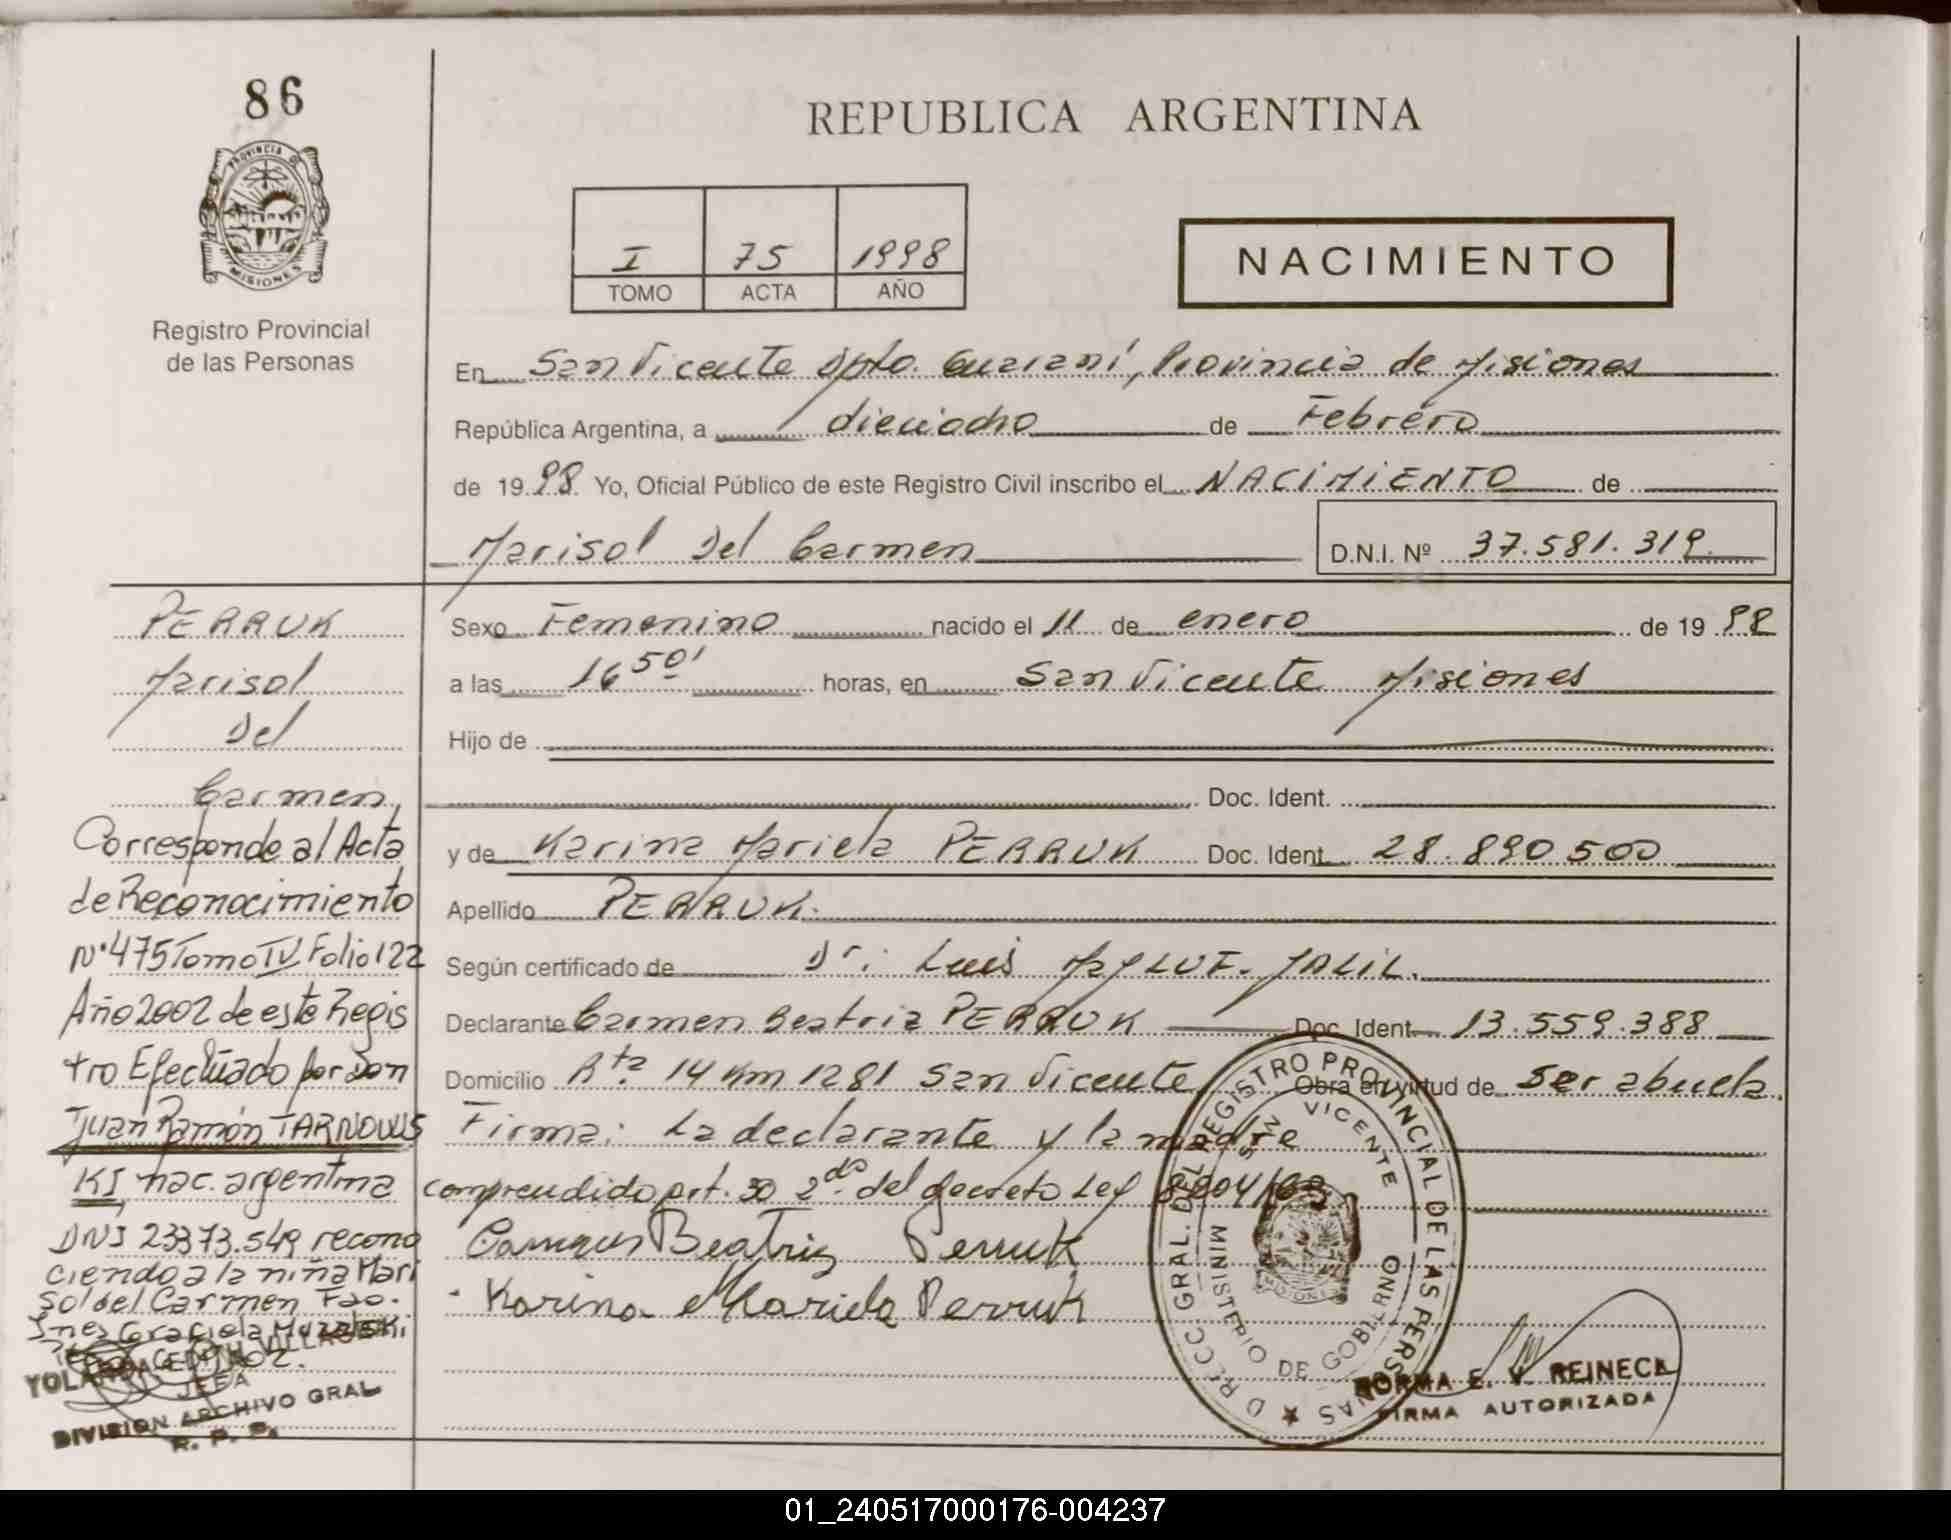 86
PROVINCIA DE
MISIONES
Registro Provincial
de las Personas
REPUBLICA ARGENTINA
I 75 1998
TOMO ACTA AÑO
NACIMIENTO
En San Vicente Dpto. Guaraní, Provincia de Misiones
República Argentina, a dieciocho de Febrero
de 1998 Yo, Oficial Público de este Registro Civil inscribo el NACIMIENTO de
Marisol Del Carmen D.N.I. Nº 37.581.319
Sexo Femenino nacido el 11 de enero de 1998
a las 16 50' horas, en San Vicente Misiones
Hijo de
Doc. Ident.
y de Karina Mariela PERRUK Doc. Ident. 28.890.500
Apellido PERRUK.
Según certificado de Dr: Luis JALIL.
Declarante Carmen Beatriz PERRUK Doc. Ident. 13.559.388
Domicilio Rta. 14 Km 1281 San Vicente Obra en virtud de ser abuela.
Firma: La declarante y la madre
comprendido art. 30 2do. del decreto Ley 8204/63
Beatriz Perruk
Karina Mariela Perruk
PERRUK
Marisol
Del
Carmen
Corresponde al Acta
de Reconocimiento
Nº 475 Tomo IV Folio 122
Año 2002 de este Regis
tro Efectuado por Don
Juan Ramón TARNOWS
KI, nac. argentina
DNI 23373.549 recono
ciendo a la niña Mari
sol del Carmen Fdo.
Ines Graciela
DIVISION ARCHIVO GRAL
R. P. P.
JEFA
DIRECC. GRAL. DEL REGISTRO PROVINCIAL DE LAS PERSONAS
SAN VICENTE
MINISTERIO DE GOBIERNO
MISIONES
NORMA E. V. REINECK
FIRMA AUTORIZADA
01_240517000176-004237